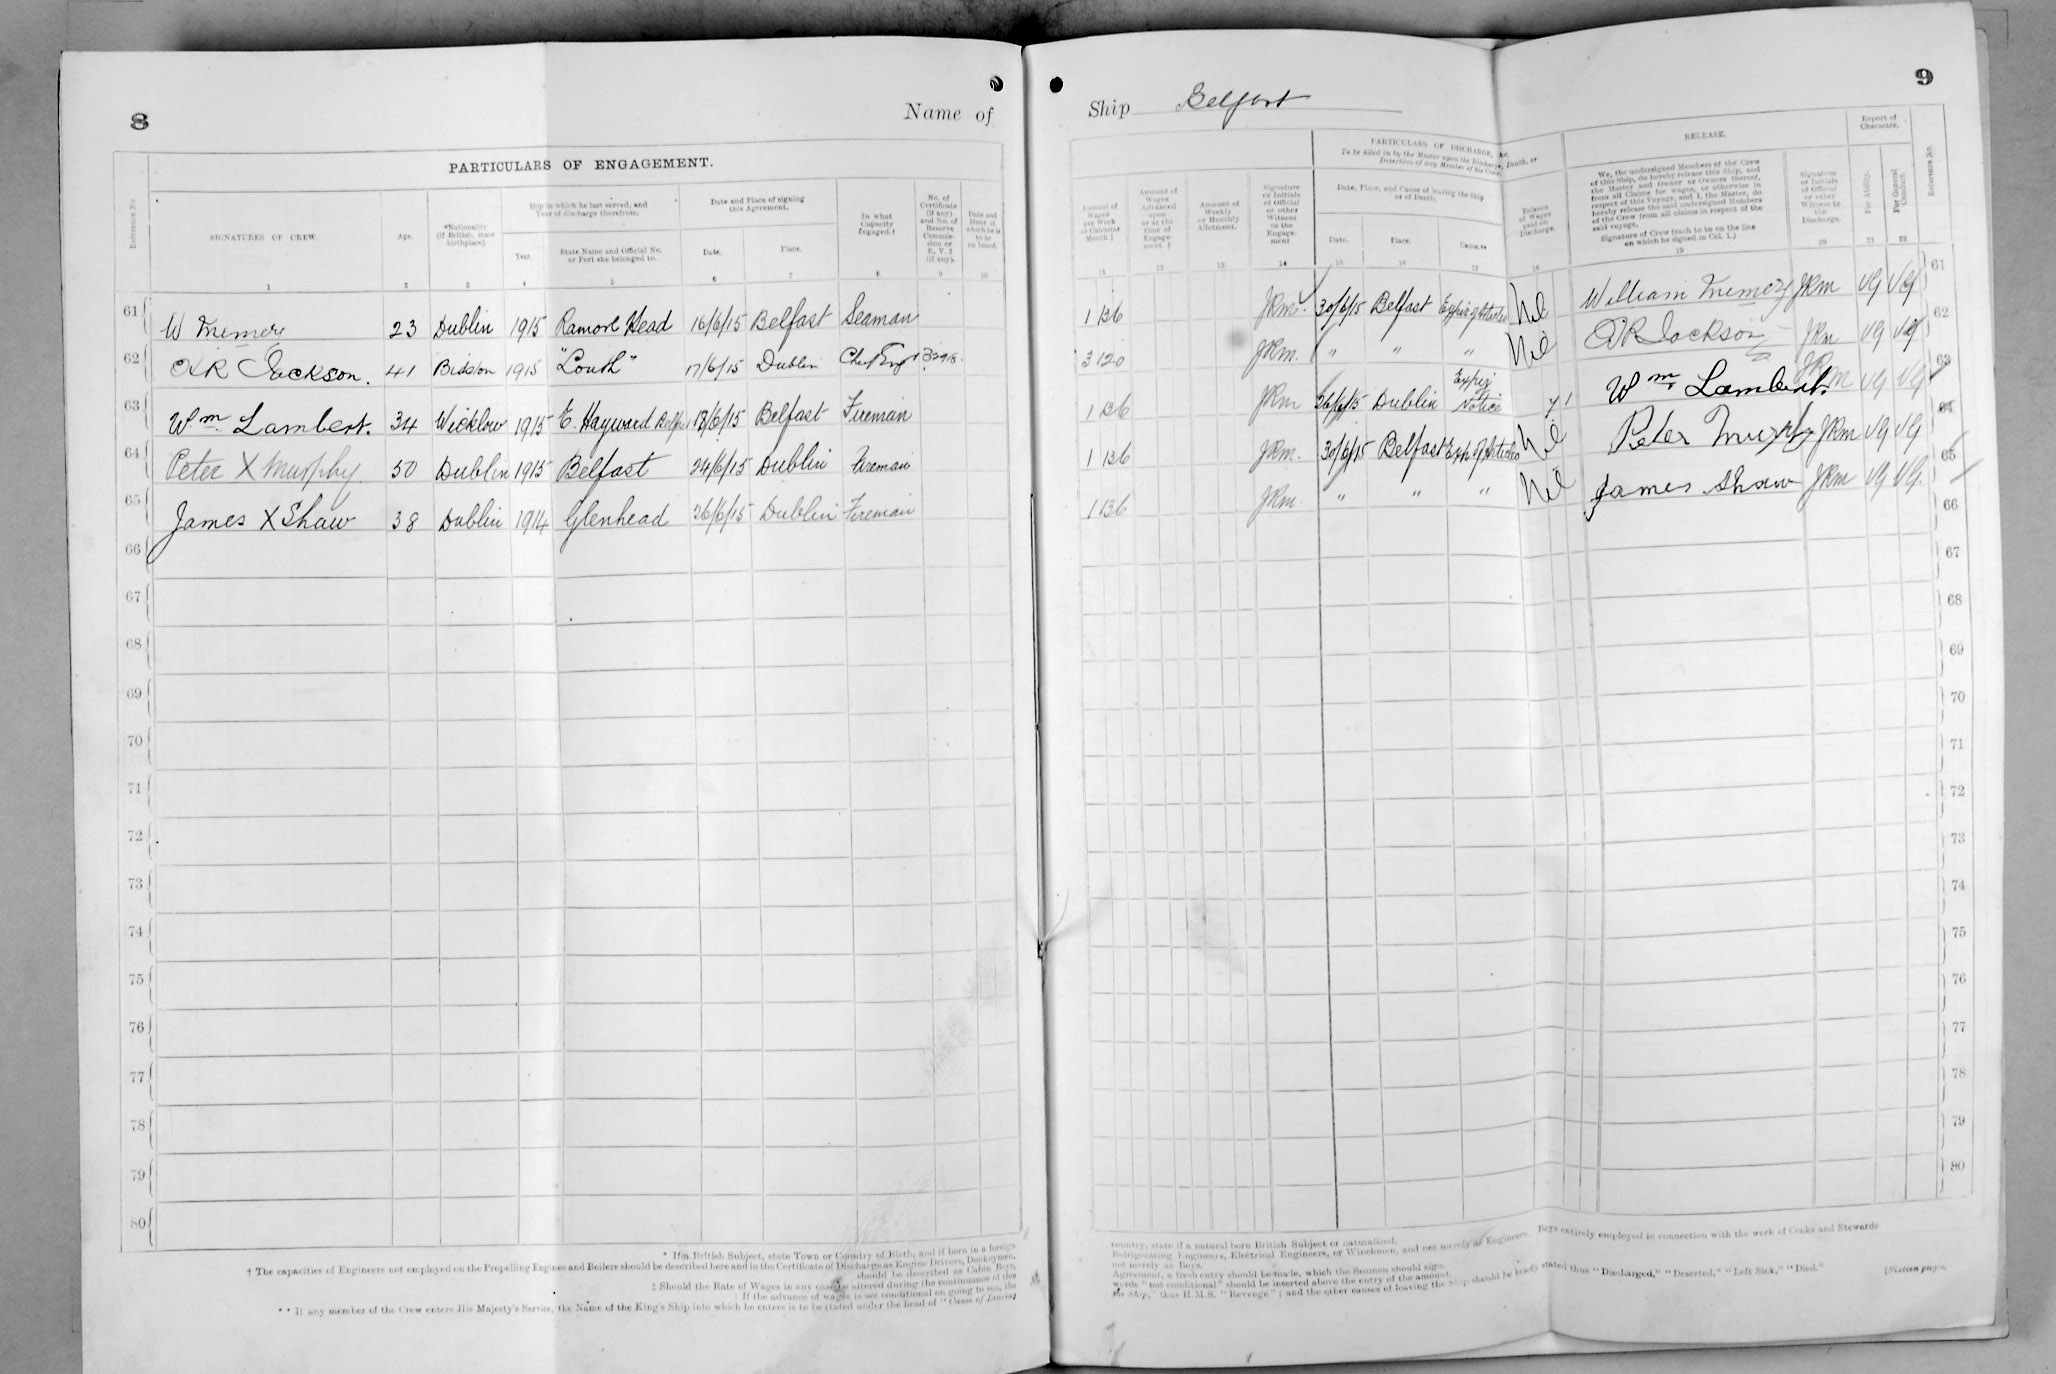 8
Name of
PARTICULARS OF ENGAGEMENT.
Reference No.
SIGNATURES OF CREW.
Age.
*Nationality
(if British, state
birthplace).
Ship in which he last served, and
Year of discharge therefrom.
Year.
State Name and Official No.
or Port she belonged to.
Date and Place of signing
this Agreement.
Date.
Place.
In what
Capacity
engaged.†
No. of
Certificate
(if any)
and No. of
Reserve
Commis-
sion or
R. V. 2
(if any).
Date and
Hour at
which he is
to be
on board.
1 2 3 4 5 6 7 8 9 10
61 W 23 Dublin 1915 Ramore Head 16/6/15 Belfast Seaman
62 R Jackson. 41 1915 "Louth" 17/6/15 Dublin Chief Eng
63 Wm. Lambert. 34 Wicklow 1915 E. Hayward 18/6/15 Belfast Fireman
64 Peter X Murphy. 50 Dublin 1915 Belfast 24/6/15 Dublin Fireman
65 James X Shaw 38 Dublin 1914 Glenhead 26/6/15 Dublin Fireman
66
67
68
69
70
71
72
73
74
75
76
77
78
79
80
* If a British Subject, state Town or Country of Birth, and if born in a foreign
† The capacities of Engineers not employed on the Propelling Engines and Boilers should be described here and in the Certificate of Discharge as Engine Drivers, Donkeymen,
should be described as Cabin Boys,
‡ Should the Rate of Wages in any case be altered during the continuance of this
If the advance of wages is not conditional on going to sea, the
** If any member of the Crew enters His Majesty's Service, the Name of the King's Ship into which he enters is to be stated under the head of "Cause of Leaving
9
Ship Belfast
PARTICULARS OF DISCHARGE, &c.
To be filled in by the Master upon the Discharge, Death, or
Desertion of any Member of his Crew.
RELEASE.
Report of
Character.
Amount of
Wages
per Week
or Calendar
Month ‡
Amount of
Wages
Advanced
upon
or at the
time of
Engage-
ment. ‡
Amount of
Weekly
or Monthly
Allotment.
Signature
or Initials
of Official
or other
Witness
to the
Engage-
ment
Date, Place, and Cause of leaving the Ship
or of Death.
Date.
Place.
Cause.**
Balance
of Wages
paid on
Discharge.
We, the undersigned Members of the Crew
of this Ship, do hereby release this Ship, and
the Master and Owner or Owners thereof,
from all Claims for wages, or otherwise in
respect of this Voyage, and I, the Master, do
hereby release the said undersigned Members
of the Crew from all claims in respect of the
said voyage.
Signature of Crew (each to be on the line
on which he signed in Col. 1.)
Signature
or Initials
of Official
or other
Witness to
the
Discharge.
For Ability.
For General
Conduct.
Reference No.
11 12 13 14 15 16 17 18 19 20 21 22
1 13 6 JRM. 30/6/15 Belfast Nil William JRM VG VG 61
3 12 0 JRM. " " " Nil R Jackson JRM VG VG 62
1 13 6 JRM 26/6/15 Dublin Notice Wm. Lambert. JRM VG VG 63
1 13 6 JRM. 30/6/15 Belfast Nil Peter Murphy JRM VG VG 64
1 13 6 JRM. " " " Nil James Shaw JRM VG VG. 65
66
67
68
69
70
71
72
73
74
75
76
77
78
79
80
country, state if a natural born British Subject or naturalised.
Refrigerating Engineers, Electrical Engineers, or Winchmen, and not merely as Engineers. Boys entirely employed in connection with the work of Cooks and Stewards
not merely as Boys.
Agreement, a fresh entry should be made, which the Seamen should sign.
words "not conditional" should be inserted above the entry of the amount.
the Ship," thus H.M.S. "Revenge"; and the other causes of leaving the Ship should be briefly stated thus "Discharged," "Deserted," "Left Sick," "Died."
[Sixteen pages.